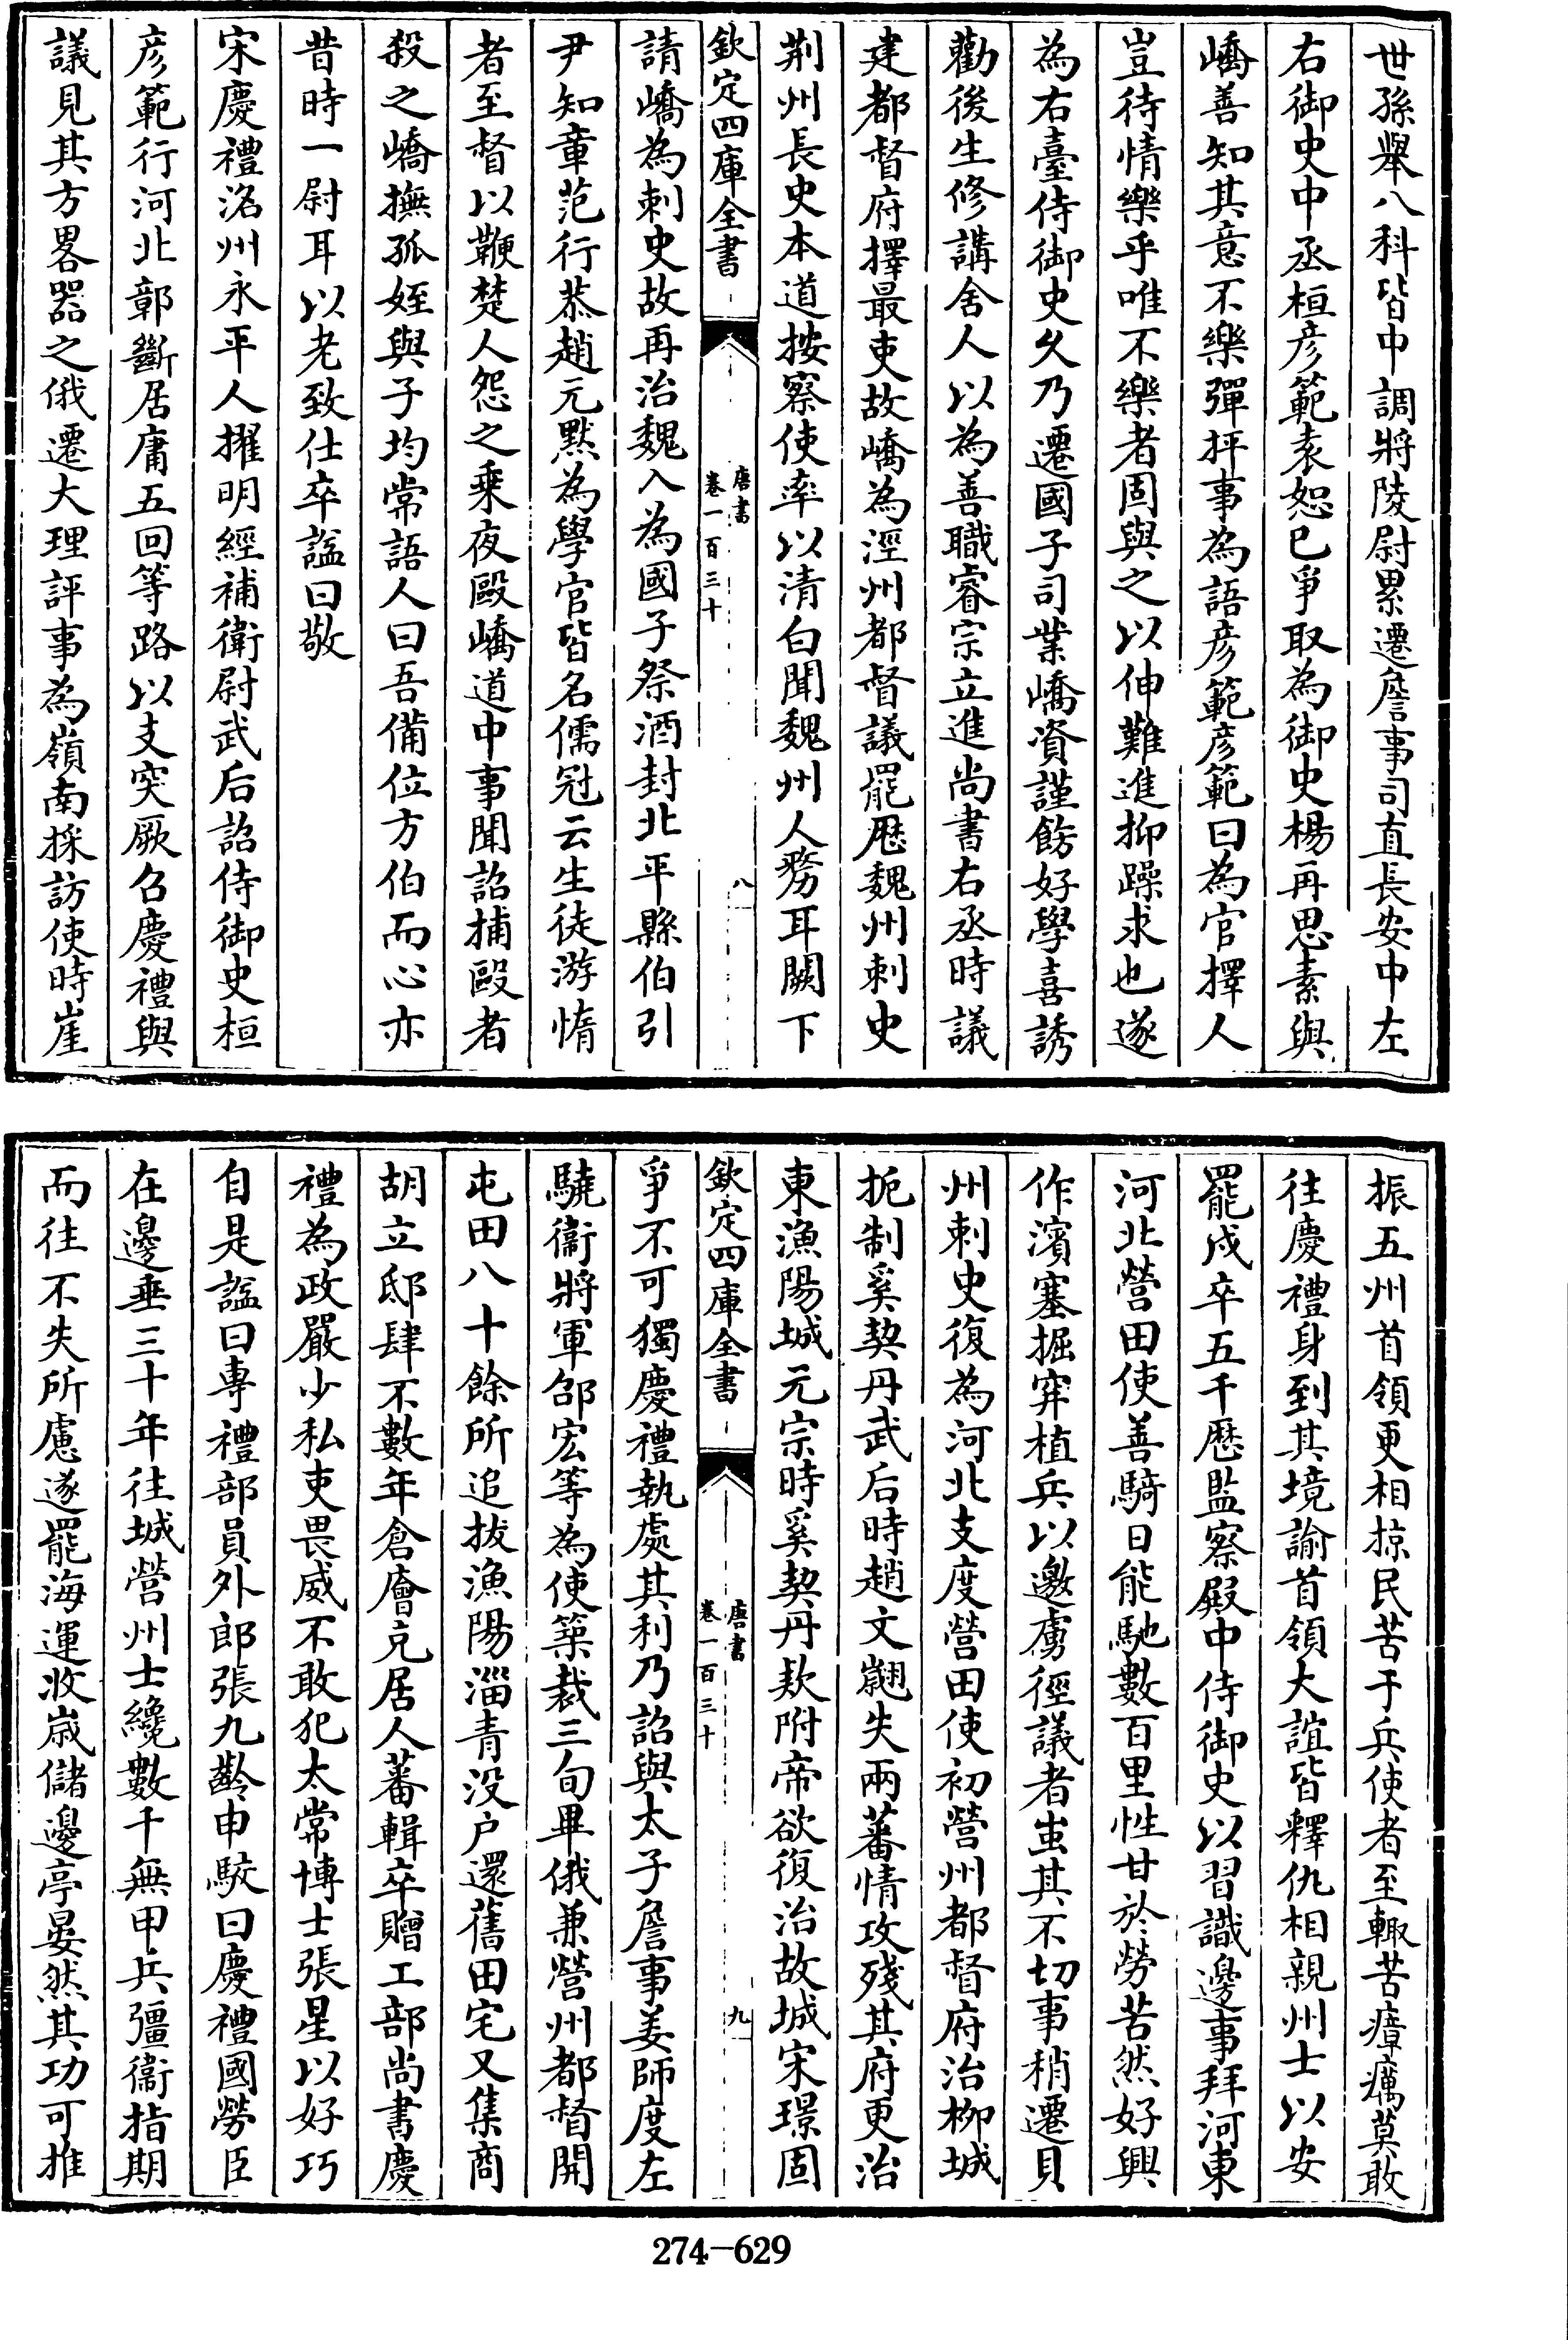 世孫舉八科皆中調將陵尉累遷詹事司直長安中左
右御史中丞桓彥範袁恕已爭取為御史楊再思素與
嶠善知其意不樂彈抨事為語彥範彥範曰為官擇人
豈待情樂乎唯不樂者固與之以伸難進抑躁求也遂
為右臺侍御史久乃遷國子司業嶠資謹飭好學喜誘
勸後生修講舍人以為善職睿宗立進尚書右丞時議
建都督府擇最吏故嶠為涇州都督議罷厯魏州刺史
荆州長史本道按察使率以清白聞魏州人務耳闕下
欽定四庫全書
唐書
卷一百三十
八
請嶠為刺史故再治魏入為國子祭酒封北平縣伯引
尹知章范行恭趙元默為學官皆名儒冠云生徒游惰
者至督以鞭楚人怨之乗夜毆嶠道中事聞詔捕毆者
殺之嶠撫孤姪與子均常語人曰吾備位方伯而心亦
昔時一尉耳以老致仕卒諡曰敬
宋慶禮洺州永平人擢明經補衛尉武后詔侍御史桓
彥範行河北鄣斷居庸五回等路以支突厥召慶禮與
議見其方畧器之俄遷大理評事為嶺南採訪使時崖
振五州首領更相掠民苦于兵使者至輙苦瘴癘莫敢
往慶禮身到其境諭首領大誼皆釋仇相親州士以安
罷戍卒五千厯監察殿中侍御史以習識邊事拜河東
河北營田使善騎日能馳數百里性甘於勞苦然好興
作濱塞掘穽植兵以邀虜徑議者蚩其不切事稍遷貝
州刺史復為河北支度營田使初營州都督府治柳城
扼制奚契丹武后時趙文翽失兩蕃情攻殘其府更治
東漁陽城元宗時奚契丹欵附帝欲復治故城宋璟固
欽定四庫全書
唐書
卷一百三十
九
爭不可獨慶禮執處其利乃詔與太子詹事姜師度左
驍衞將軍邵宏等為使築裁三旬畢俄兼營州都督開
屯田八十餘所追拔漁陽淄青没户還舊田宅又集商
胡立邸肆不數年倉廥充居人蕃輯卒贈工部尚書慶
禮為政嚴少私吏畏威不敢犯太常博士張星以好巧
自是諡曰專禮部員外郎張九齡申駮曰慶禮國勞臣
在邊垂三十年往城營州士纔數千無甲兵彊衞指期
而往不失所慮遂罷海運收嵗儲邊亭晏然其功可推
274-629